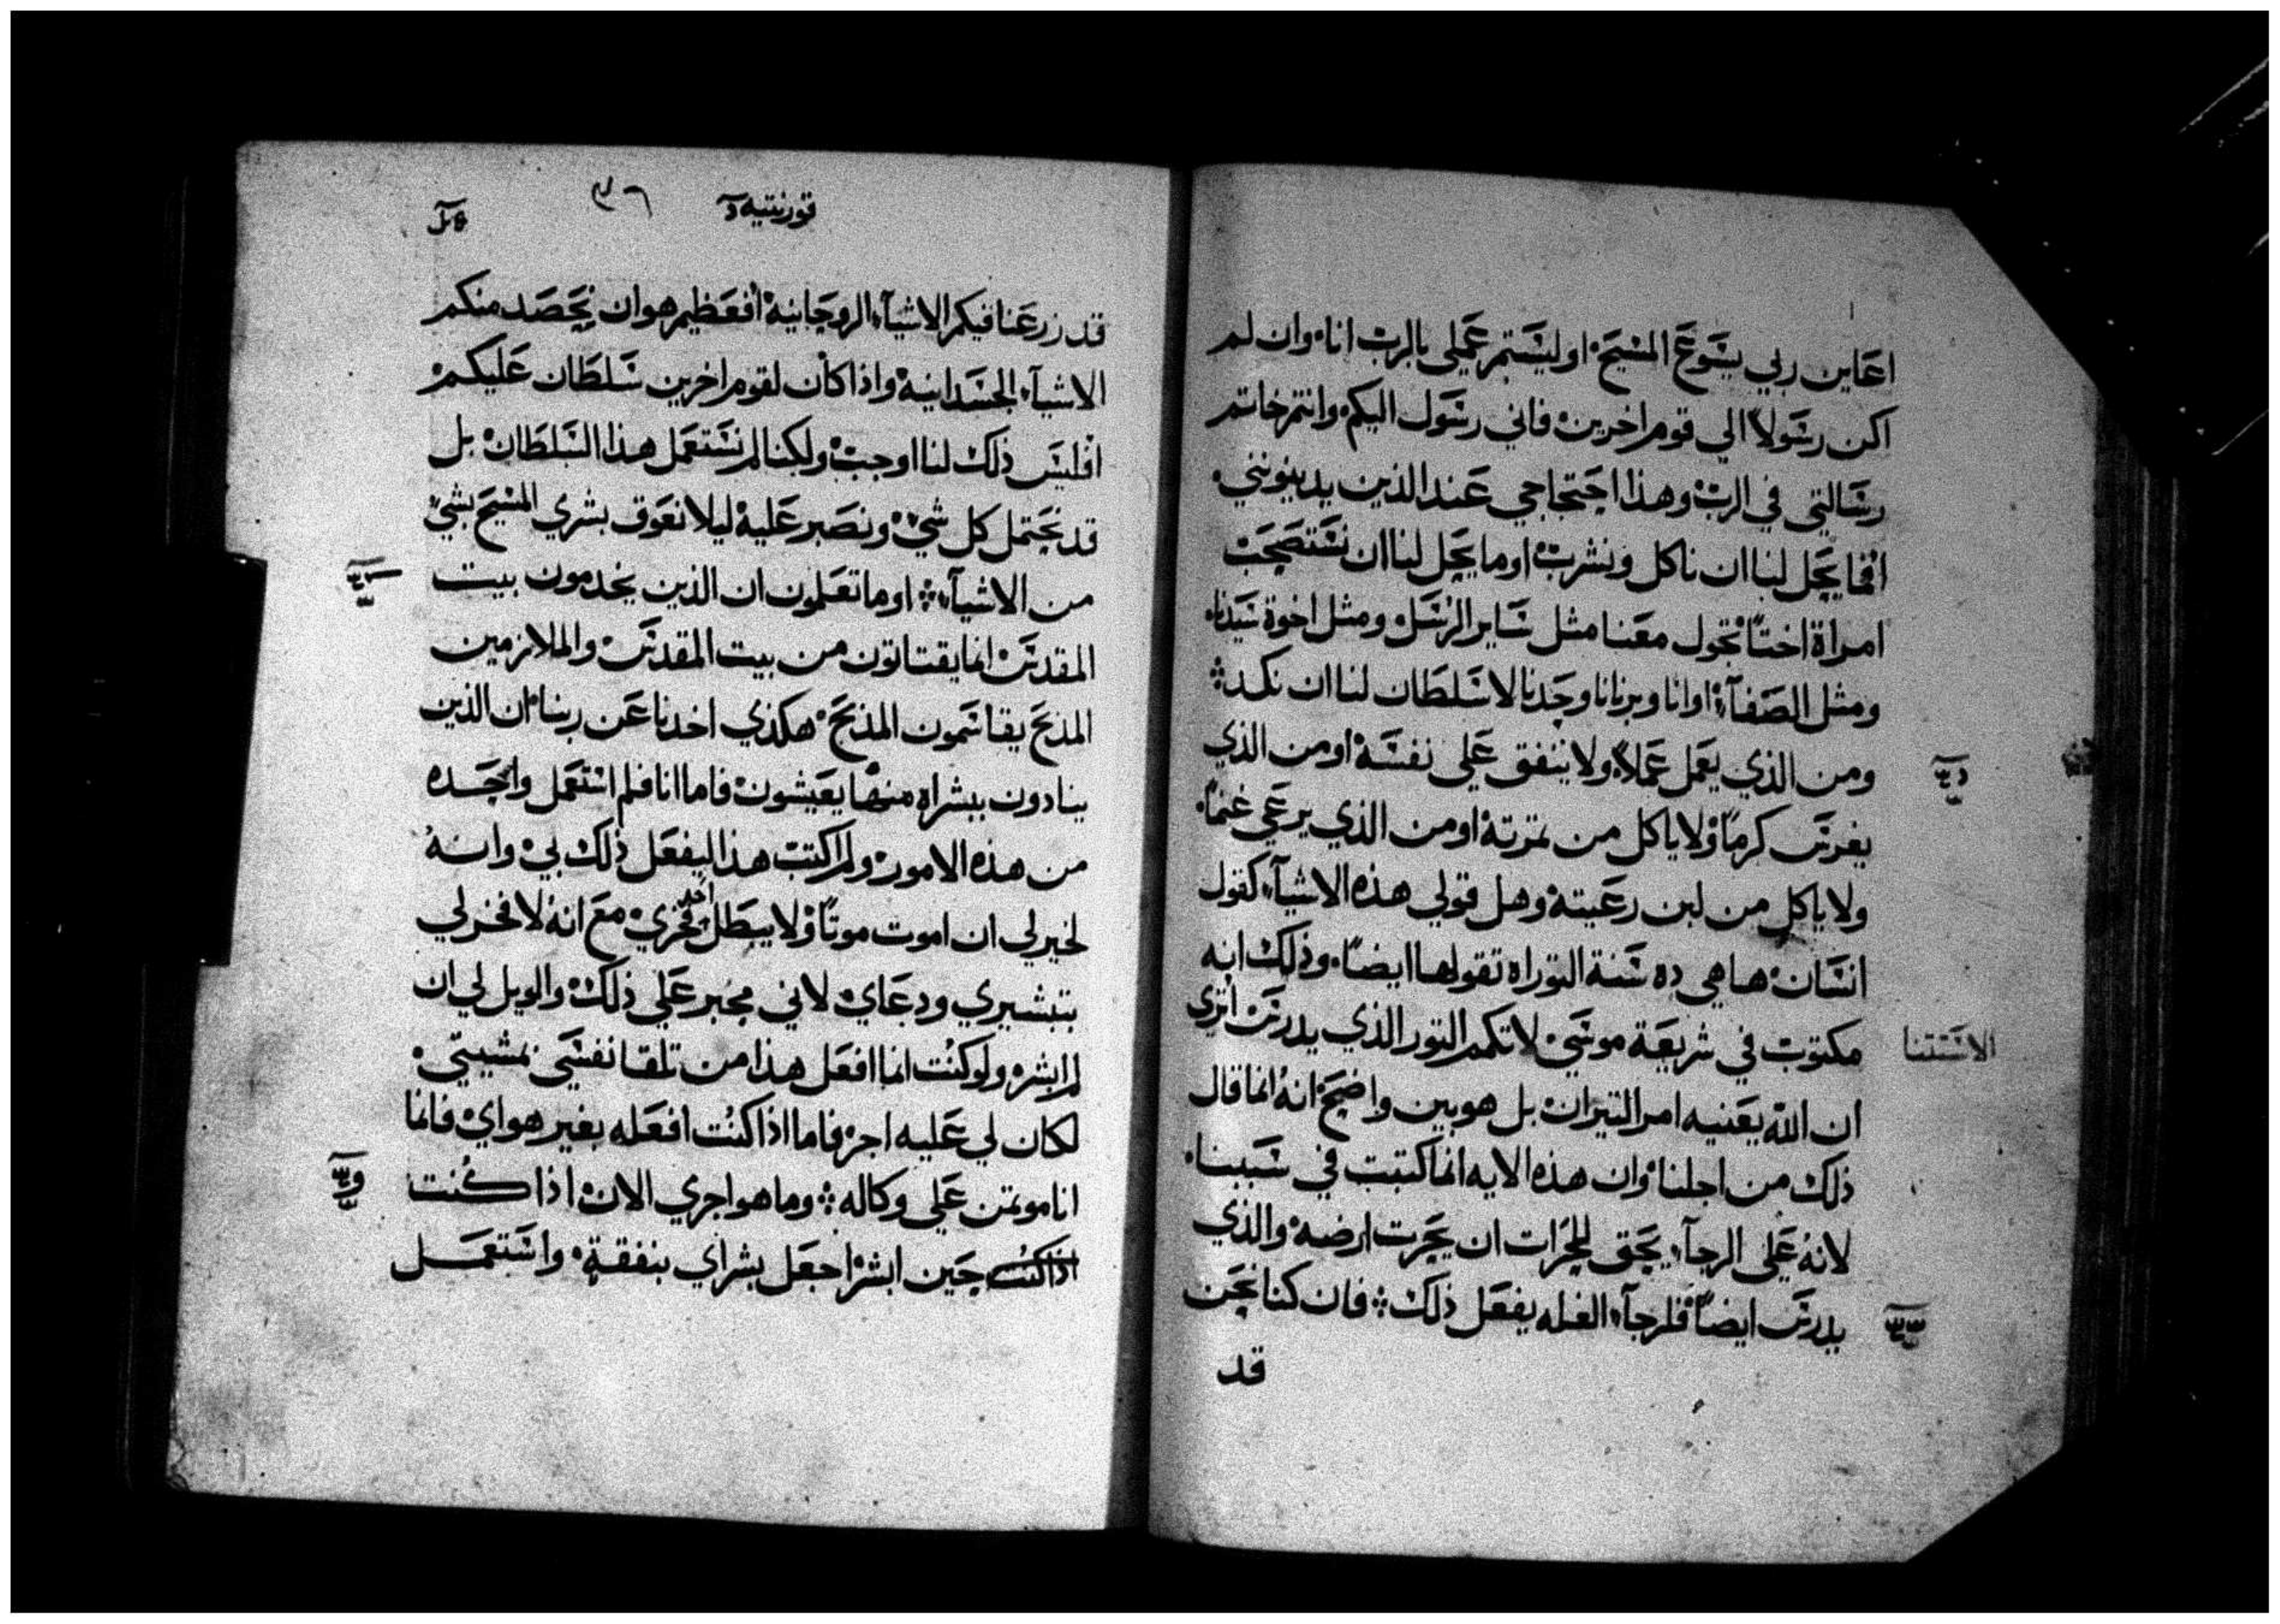 اعاين ربي يسوع المسيح اوليستم عملي بالرب انا وان لم
اكن رسولاً الي قوم اخرين فاني رسول اليكم وانتم خاتم
رسالتي في الرب وهذا احتجاجي عند الذين يدينونني
افما يحل لنا ان ناكل ونشرب او ما يحل لنا ان نستصحب
امراة اختاً تجول معنا مثل ساير الرسل ومثل اخوة سيدنا
ومثل الصفاء او انا وبرنانا وحدنا لا سلطان لنا ان نكد
ومن الذي يعمل عملاً ولا ينفق علي نفسه او من الذي
يغرس كرماً ولا ياكل من ثمرته او من الذي يرعي غنماً
ولا ياكل من لبن رعيته وهل قولي هذه الاشياء كقول
انسان ها هي ده سنة التوراه تقولها ايضاً وذلك انه
مكتوب في شريعة موسي لا تكمم الثور الذي يدرس اتري
الاستتنا
ان الله يعنيه امر التيران بل هو بين واضح انه انما قال
ذلك من اجلنا وان هذه الايه انما كتبت في سببنا
لانه علي الرجاء يحق للحراث ان يحرث ارضه والذي
يدرس ايضاً فلرجاء الغله يفعل ذلك فان كنا نحن
قد
قورنتيه
٣٦
قد زرعنا فيكم الاشياء الروحانية افعظيم هو ان نحصد منكم
الاشياء الجسدانية واذا كان لقوم اخرين سلطان عليكم
افليس ذلك لنا اوجب ولكنا لم نستعمل هذا السلطان بل
قد نحتمل كل شي ونصبر عليه ليلا نعوق بشري المسيح بشي
من الاشياء او ما تعلمون ان الذين يخدمون بيت
المقدس انما يقتاتون من بيت المقدس والملازمين
المذبح يقاسمون المذبح هكذي اخدنا عن ربنا ان الذين
ينادون ببشراه منها يعيشون فاما انا فلم استعمل واحده
من هذه الامور ولم اكتب هذا ليفعل ذلك بي وانه
لخير لي ان اموت موتاً ولا يبطل احد فخري مع انه لا فخر لي
بتبشيري ودعاي لاني مجبر علي ذلك والويل لي ان
لم ابشر ولو كنت انما افعل هذا من تلقا نفسي بمشيتي
لكان لي عليه اجر فاما اذا كنت افعله بغير هواي فانما
انا موتمن علي وكاله وما هو اجري الان اذا كنت
اذا كنت حين ابشر اجعل بشراي بنفقة واستعمل